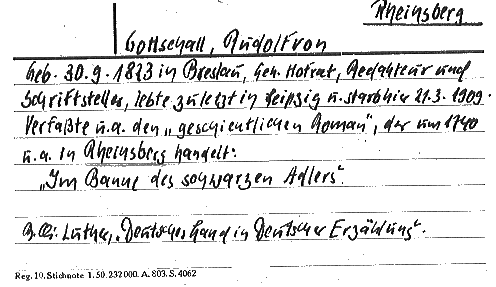 Rheinsberg
Gottschall, Rudolf von
Geb. 30.9.1823 in Breslau, Geh. Hofrat, Redakteur und
Schriftsteller, lebte zuletzt in Leipzig u. starb hier 21.3.1909.
Verfaßte u.a. den „geschichtlichen Roman", der um 1740
u.a. in Rheinsberg handelt:
„Im Banne des schwarzen Adlers".
Luther, „Deutsches Land in Deutscher Erzählung".
Reg. 10. Stichnote 1. 50. 232000. A. 803. S. 4062